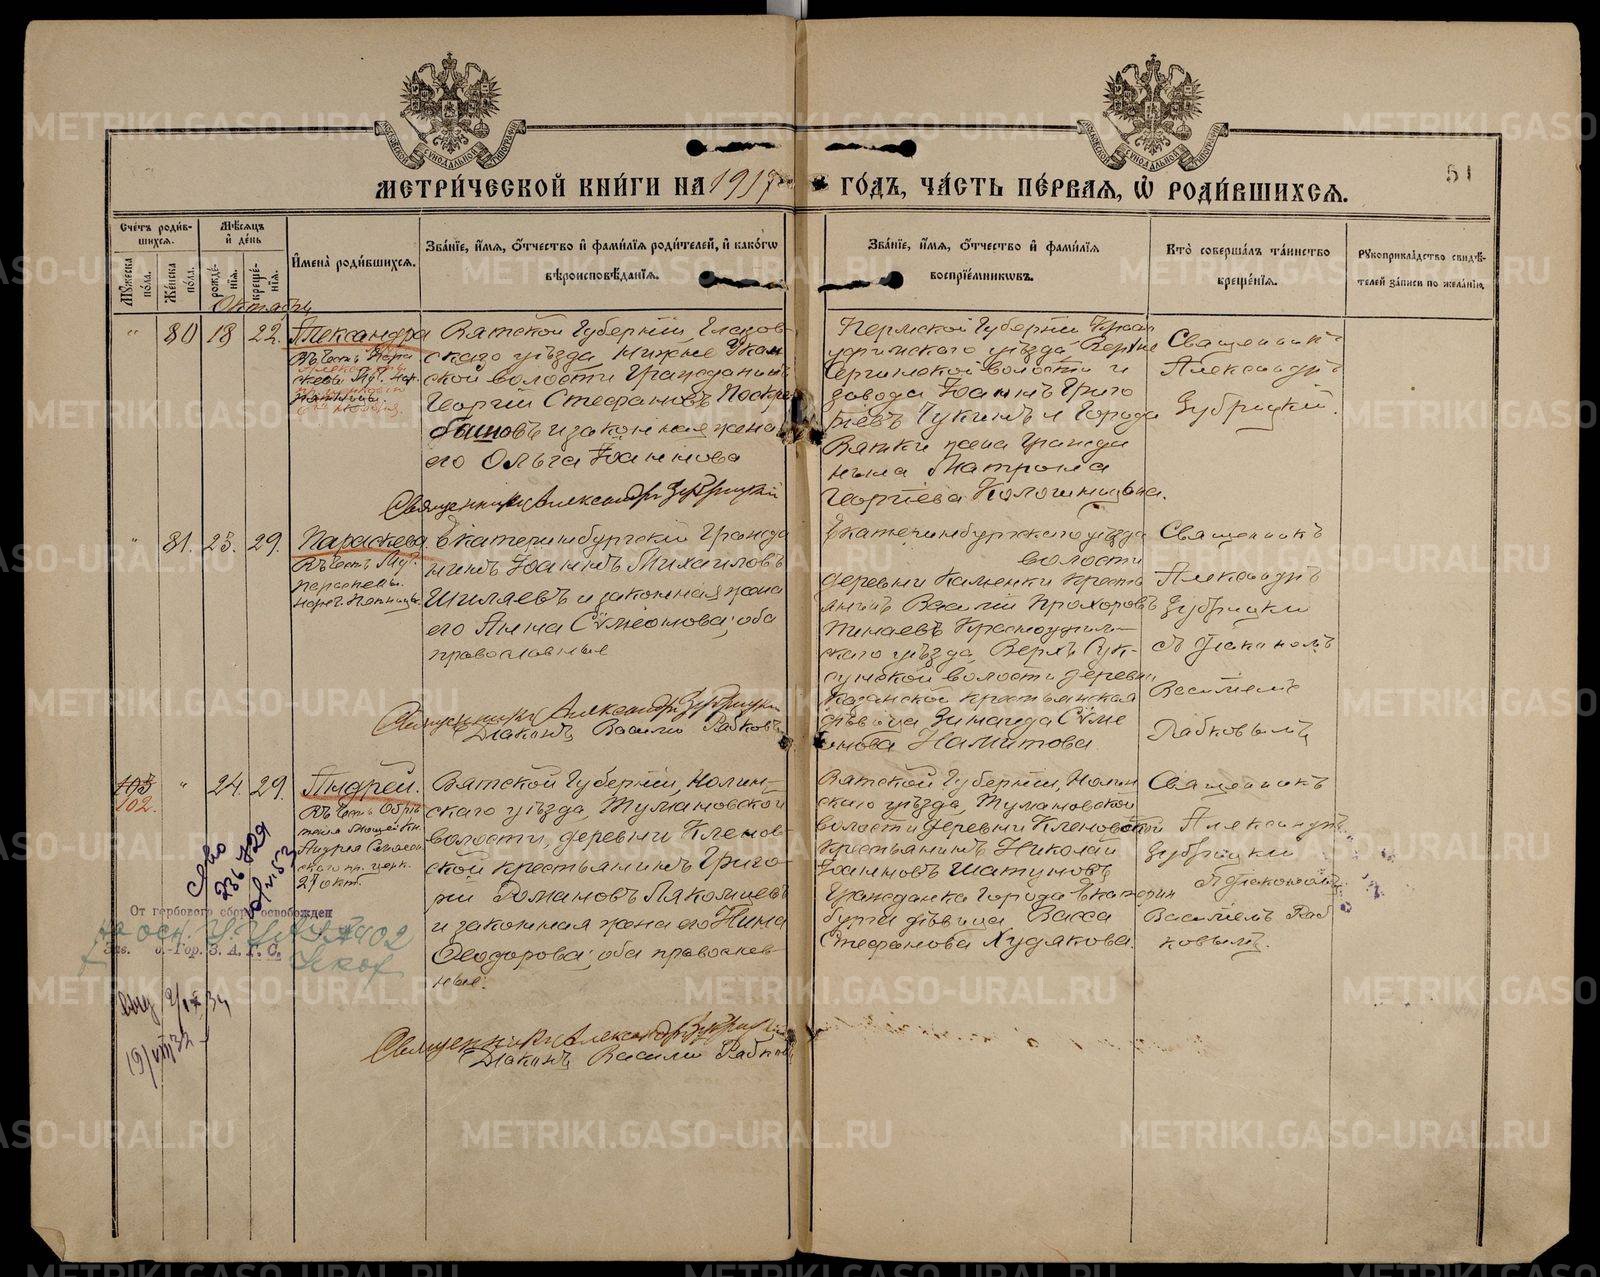 МЕТРИ́ЧЕСКОЙ КНИ́ГИ НА 1917 ГО́ДЪ, ЧА́СТЬ ПЕ́РВАЯ, Ѡ҆ РОДИ́ВШИХСЯ.
51
Сче́тъ роди́вшихся.
Мꙋ́жеска по́ла.
Же́нска по́ла.
Мѣ́сяцъ и҆ де́нь
рожде́нїя.
креще́нїя.
И҆мена̀ роди́вшихся.
Зва́нїе, и҆́мя, ѻ҆́тчество и҆ фами́лїя роди́телей, и҆ како́гѡ
вѣроисповѣ́данїя.
Зва́нїе, и҆́мя, ѻ҆́тчество и҆ фами́лїя
воспрїе́мникѡвъ.
Кто̀ соверша́лъ та́инство
креще́нїя.
Рꙋкоприкла́дство свидѣ́-
телей за́писи по жела́нїю.
Октябрь
" 80 18 22. Александра
Вятской Губерніи, Глазов-
скаго уѣзда, Нижне
ской волости Гражданинъ
Георгій Стефановъ Поскре
бышовъ и законная жена
его Ольга Іоаннова
Священникъ Александръ Зубрицкій
Пермской Губерніи Красно
уфимскаго уѣзда Верхне
Сергинской волости и
завода Іоаннъ Григо
рьевъ Чукинъ и Города
Вятки жена Гражда
нина Матрона
Георгіева Колошницына.
Священникъ
Александръ
Зубрицкій.
" 81. 23. 29. Параскева
Въ честь Муч.
Параскевы
нареч. Пятницы
Екатеринбургскій Гражда
нинъ Іоаннъ Михаиловъ
Шиляевъ и законная жена
его Анна Сѵмеонова; оба
православные
Священникъ Александръ Зубрицкій
Діаконъ Василій Рабковъ
Екатеринбургскаго уѣзда
волости
деревни Каменки кресть
янинъ Василій Прохоровъ
Пинаевъ Красноуфим-
скаго уѣзда, Верхъ Сук-
сунской волости деревни
Казанской крестьянская
дѣвица Зинаида Сѵме
онова Намитова
Священникъ
Александръ
Зубрицкій
съ діакономъ
Василіемъ
Рабковымъ
103
102. " 24. 29. Андрей.
27 окт.
Вятской Губерніи, Нолин-
скаго уѣзда, Тумановской
волости, деревни Кленов-
ской крестьянинъ Григо-
рій Романовъ Ляколицевъ
и законная жена его Нина
Ѳеодорова; оба православ-
ные.
Священникъ Александръ Зубрицкій
Діаконъ Василій Рабковъ
Вятской Губерніи, Нолин
скаго уѣзда, Тумановской
волости деревни Кленовской
крестьянинъ Николай
Іоанновъ Шатуновъ
Гражданка Города Екатерин
бурга дѣвица Васса
Стефанова Худякова.
Священникъ
Александръ
Зубрицкій
съ діакономъ
Василіемъ Раб
ковымъ.
От гербового сбора освобожден
Зав. -Гор. З. А. Г. С.
19/VIII 32
METRIKI.GASO-URAL.RU